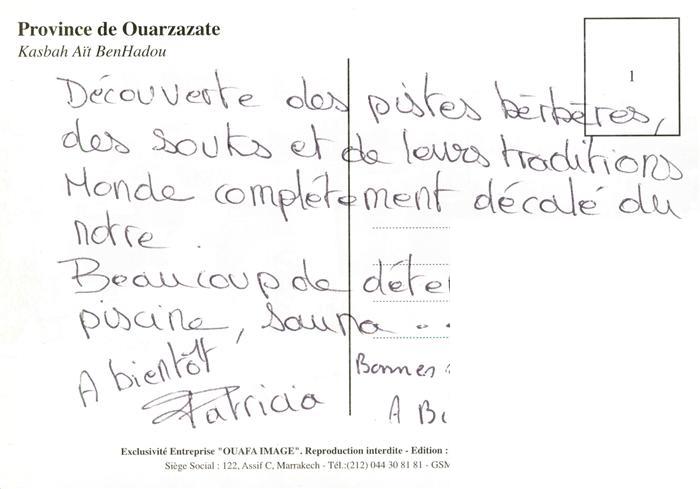 Province de Ouarzazate
Kasbah Aït BenHadou
1
Découverte des pistes bèrbères,
des souks et de leurs traditions
Monde complétement décalé du
notre.
Beaucoup de déte
piscine, sauna ..
A bientôt
Patricia
A B
Exclusivité Entreprise "OUAFA IMAGE". Reproduction interdite - Edition :
Siège Social : 122, Assif C, Marrakech - Tél.:(212) 044 30 81 81 - GSM